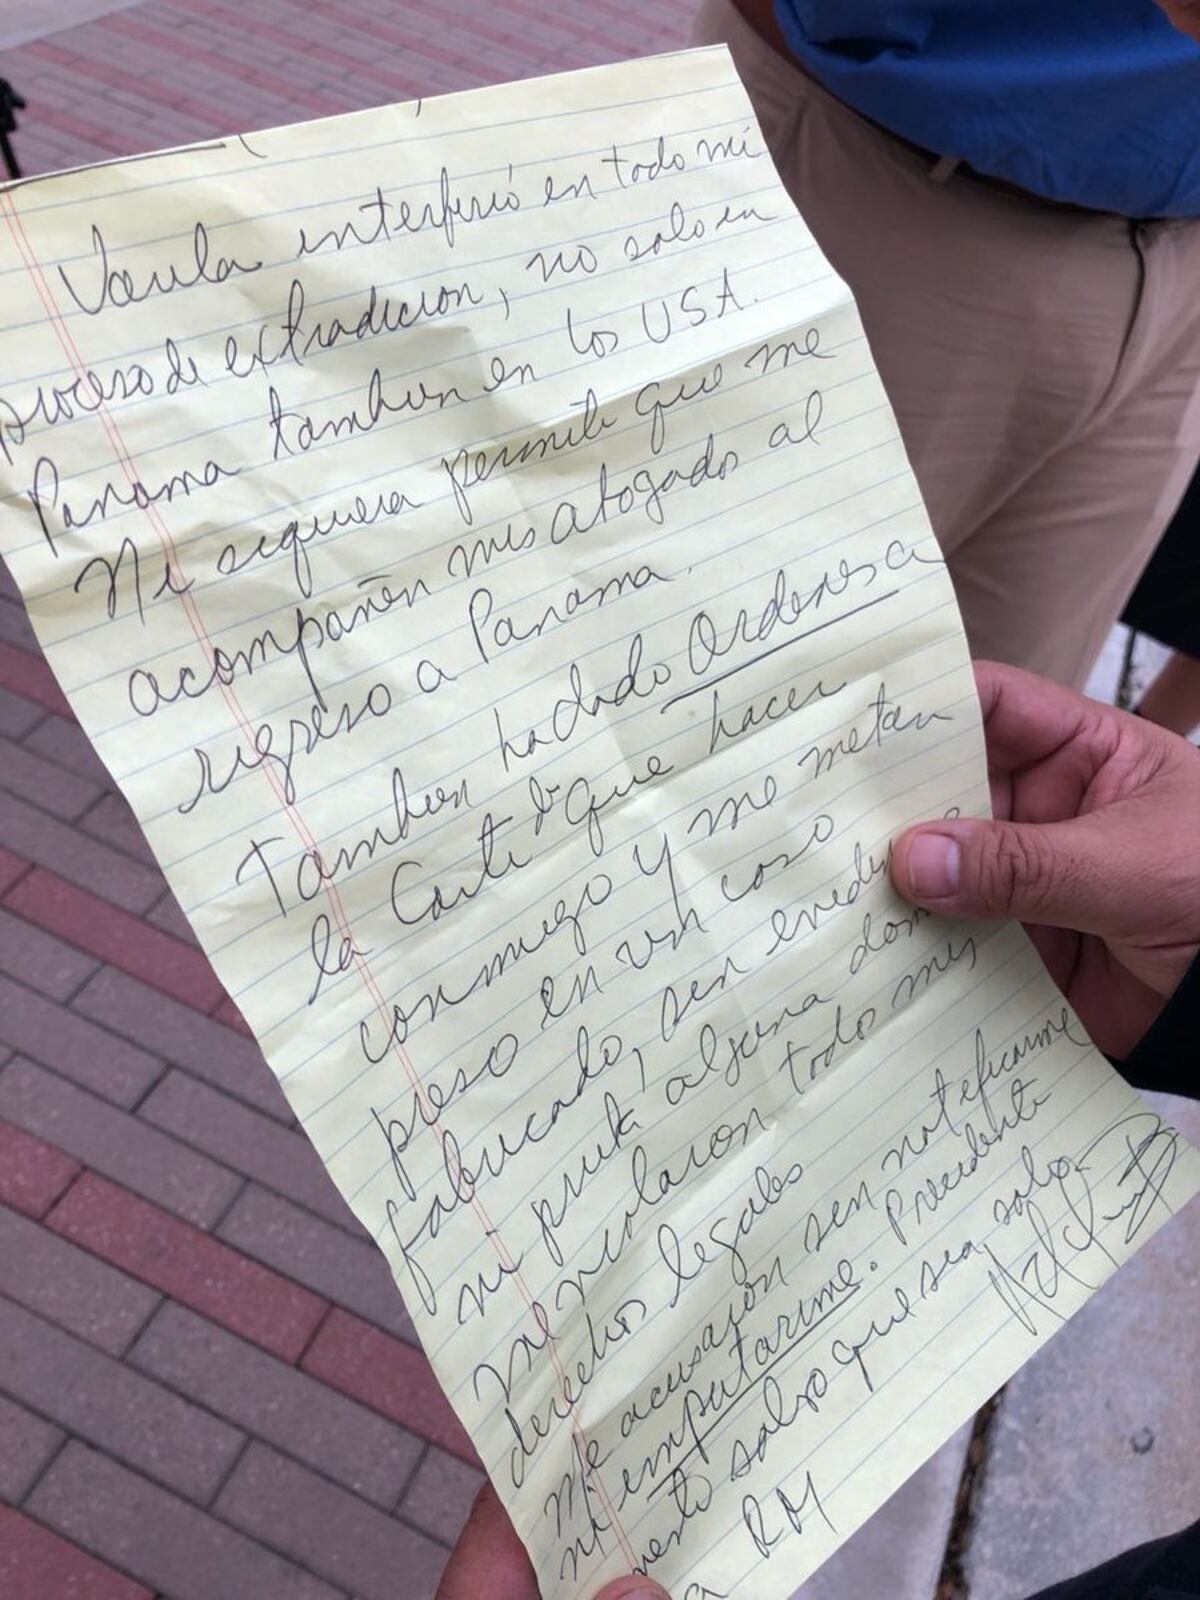 Varela interfirió en todo mi
proceso de extradicion, no solo en
Panama tambien en los USA.
Ni siquiera permite que me
acompañen mis abogado al
regreso a Panama.
Tambien ha dado Ordenes a
la Corte d que hacer
conmigo y me metan
preso en un caso
fabricado, sin
ni prueba alguna
me violaron todos mis
derechos legales
Me acusaron sin notificarme
ni imputarme. Precidente
salvo que sea, solo
RM